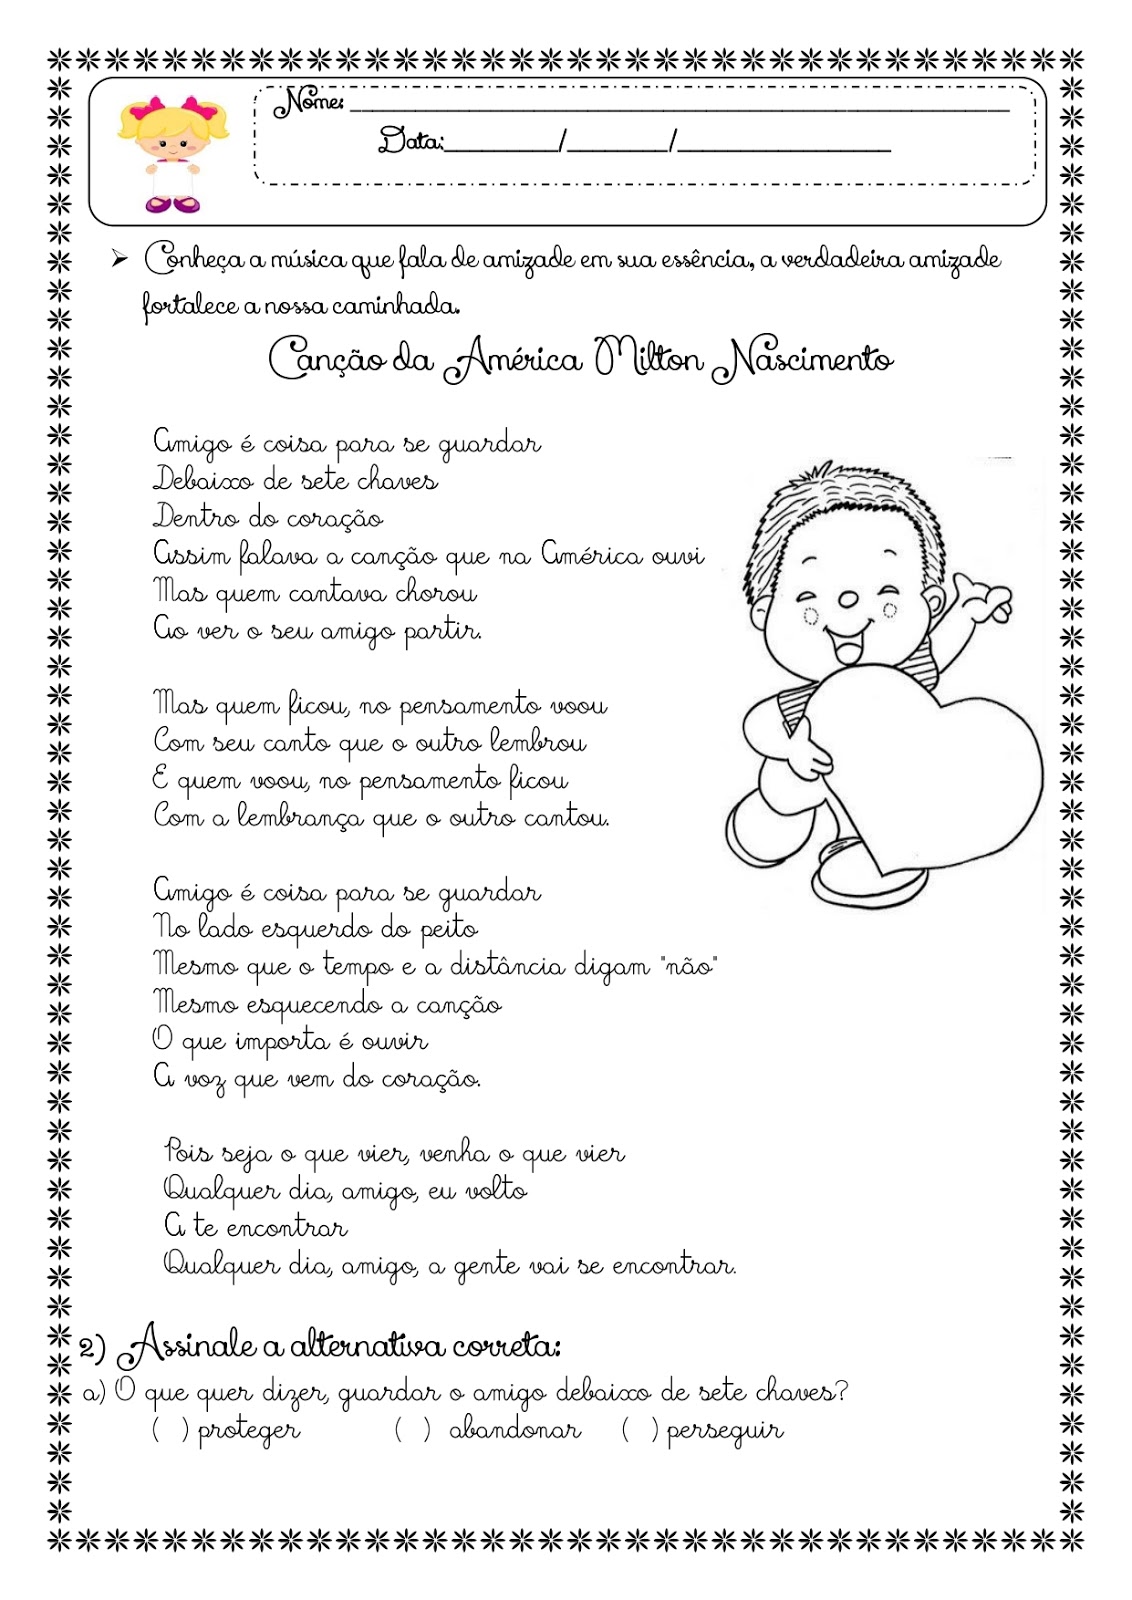 Nome: ______________________________
Data:________/_______/______________
➢ Conheça a música que fala de amizade em sua essência, a verdadeira amizade
fortalece a nossa caminhada.
Canção da América Milton Nascimento
Amigo é coisa para se guardar
Debaixo de sete chaves
Dentro do coração
Assim falava a canção que na América ouvi
Mas quem cantava chorou
Ao ver o seu amigo partir.
Mas quem ficou, no pensamento voou
Com seu canto que o outro lembrou
E quem voou, no pensamento ficou
Com a lembrança que o outro cantou.
Amigo é coisa para se guardar
No lado esquerdo do peito
Mesmo que o tempo e a distância digam "não"
Mesmo esquecendo a canção
O que importa é ouvir
A voz que vem do coração.
Pois seja o que vier, venha o que vier
Qualquer dia, amigo, eu volto
A te encontrar
Qualquer dia, amigo, a gente vai se encontrar.
2) Assinale a alternativa correta:
a) O que quer dizer, guardar o amigo debaixo de sete chaves?
( ) proteger ( ) abandonar ( ) perseguir